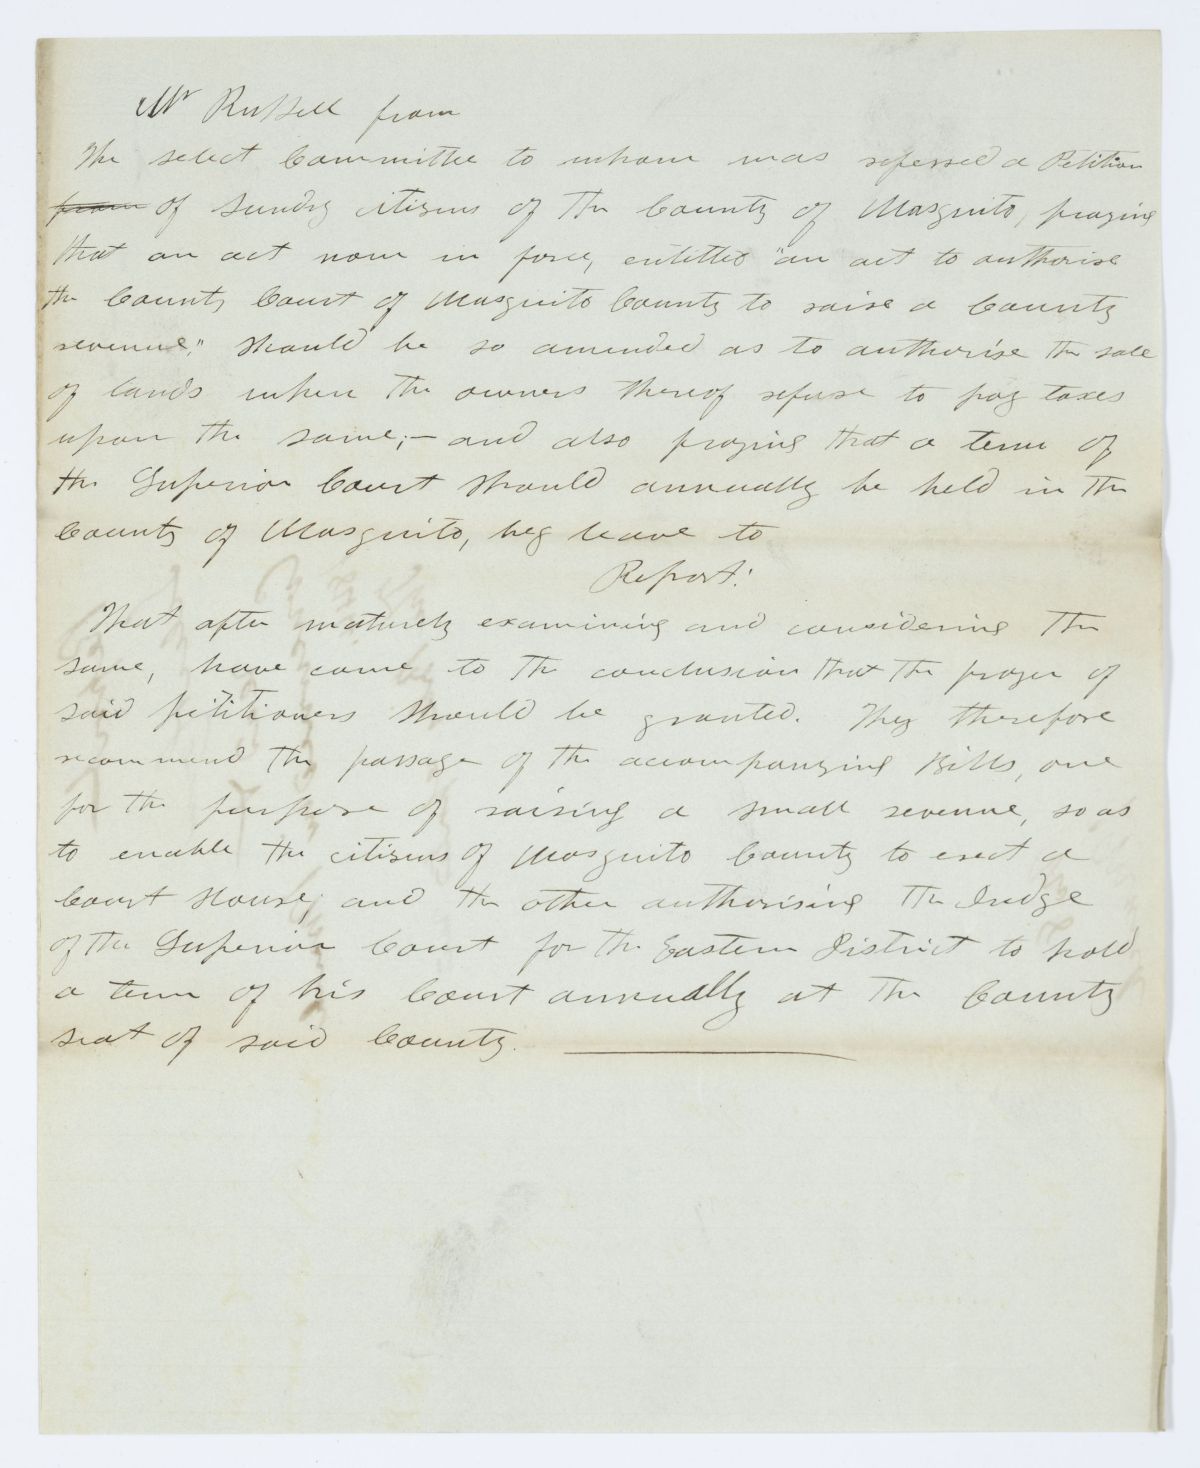 Mr Russell from
The select Committee to whom was referred a Petition
from of Sundry citizens of the County of Mosquito, praying
that an act now in force, entitled "an act to authorise
the County Court of Mosquito County to raise a County
revenue," should be so amended as to authorise the sale
of lands when the owners thereof refuse to pay taxes
upon the same;— and also praying that a term of
the Superior Court should annually be held in the
County of Mosquito, beg leave to
Report:
That after maturely examining and considering the
same, have come to the conclusion that the prayer of
said petitioners should be granted. They therefore
recommend the passage of the accompanying Bills, one
for the purpose of raising a small revenue, so as
to enable the citizens of Mosquito County to erect a
Court House; and the other authorising the Judge
of the Superior Court for the Eastern District to hold
a term of his Court annually at the County
seat of said County.